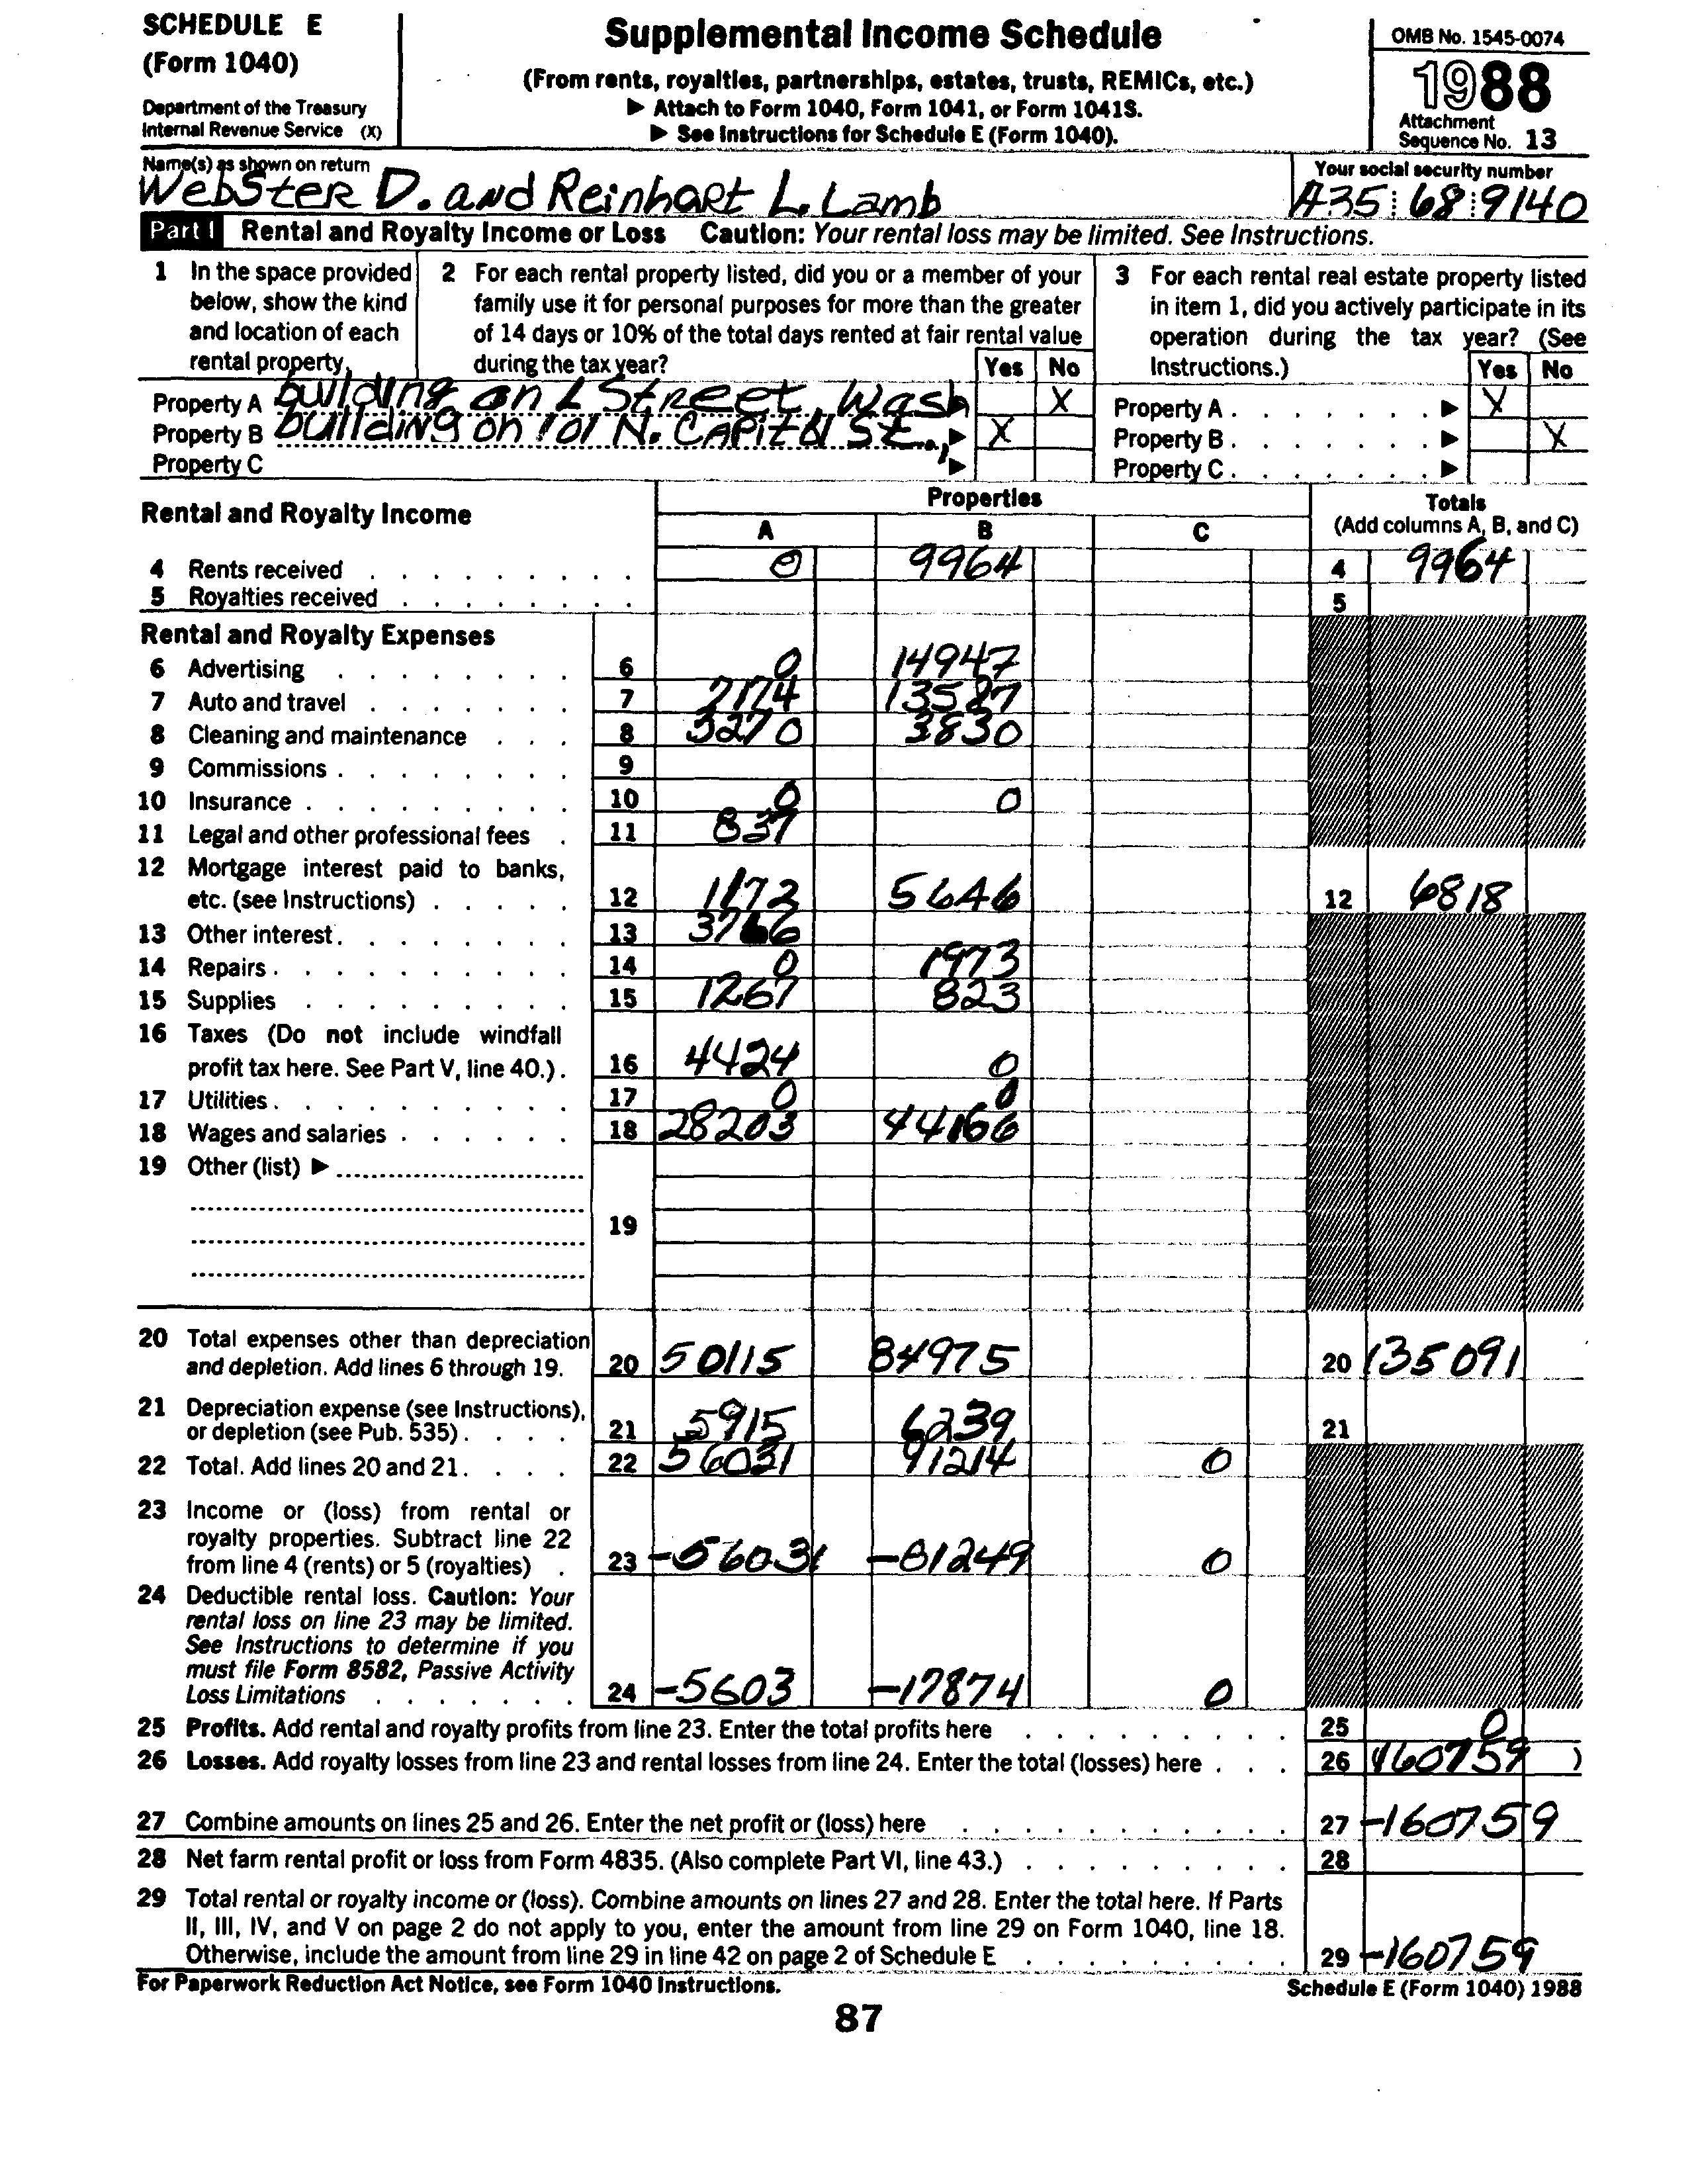 SCHEDULE E
(Form 1040)
Department of the Treasury
Internal Revenue Service (X)
Supplemental Income Schedule
(From rents, royalties, partnerships, estates, trusts, REMICs, etc.)
▶ Attach to Form 1040, Form 1041, or Form 1041S.
▶ See Instructions for Schedule E (Form 1040).
OMB No. 1545-0074
1988
Attachment
Sequence No. 13
Name(s) as shown on return
Webster D. and Reinhart L. Lamb
Your social security number
A35 68 9140
Part I Rental and Royalty Income or Loss Caution: Your rental loss may be limited. See Instructions.
1 In the space provided below, show the kind and location of each rental property.
2 For each rental property listed, did you or a member of your family use it for personal purposes for more than the greater of 14 days or 10% of the total days rented at fair rental value during the tax year?
Yes No
3 For each rental real estate property listed in item 1, did you actively participate in its operation during the tax year? (See Instructions.)
Yes No
Property A building on L Street, Wash X
Property A . . . . . . . ▶ X
Property B building on 101 N. Capital St., ▶ X
Property B . . . . . . . ▶ X
Property C ▶
Property C . . . . . . . ▶
Rental and Royalty Income
Properties
A B C
Totals
(Add columns A, B, and C)
4 Rents received 0 9964 4 9964
5 Royalties received 5
Rental and Royalty Expenses
6 Advertising 6 0 14947
7 Auto and travel 7 7174 13587
8 Cleaning and maintenance 8 3270 3830
9 Commissions 9
10 Insurance 10 0 0
11 Legal and other professional fees 11 837
12 Mortgage interest paid to banks,
etc. (see Instructions) 12 1172 5646 12 6818
13 Other interest 13 3766
14 Repairs 14 0 1973
15 Supplies 15 1267 823
16 Taxes (Do not include windfall
profit tax here. See Part V, line 40.) 16 4424 0
17 Utilities 17 0 0
18 Wages and salaries 18 28203 44166
19 Other (list) ▶
19
20 Total expenses other than depreciation
and depletion. Add lines 6 through 19. 20 50115 84975 20 135091
21 Depreciation expense (see Instructions),
or depletion (see Pub. 535) 21 5915 6239 21
22 Total. Add lines 20 and 21. 22 56031 91214 0
23 Income or (loss) from rental or
royalty properties. Subtract line 22
from line 4 (rents) or 5 (royalties) 23 -56031 -81249 0
24 Deductible rental loss. Caution: Your
rental loss on line 23 may be limited.
See Instructions to determine if you
must file Form 8582, Passive Activity
Loss Limitations 24 -5603 -17874 0
25 Profits. Add rental and royalty profits from line 23. Enter the total profits here 25 0
26 Losses. Add royalty losses from line 23 and rental losses from line 24. Enter the total (losses) here 26 (160759 )
27 Combine amounts on lines 25 and 26. Enter the net profit or (loss) here 27 -160759
28 Net farm rental profit or loss from Form 4835. (Also complete Part VI, line 43.) 28
29 Total rental or royalty income or (loss). Combine amounts on lines 27 and 28. Enter the total here. If Parts
II, III, IV, and V on page 2 do not apply to you, enter the amount from line 29 on Form 1040, line 18.
Otherwise, include the amount from line 29 in line 42 on page 2 of Schedule E 29 -160759
For Paperwork Reduction Act Notice, see Form 1040 Instructions.
Schedule E (Form 1040) 1988
87